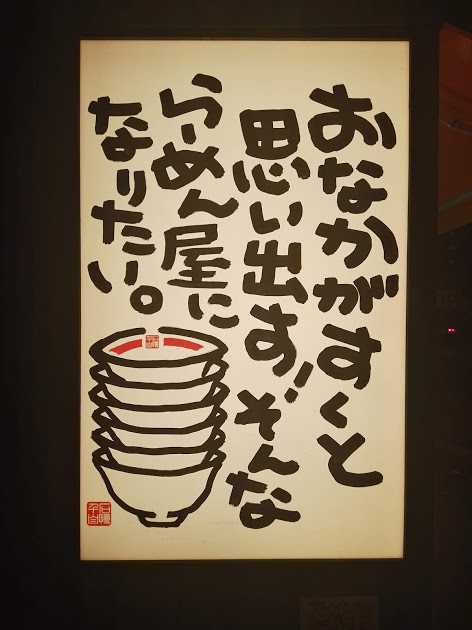 おなかがすくと
思い出す、そんな
らーめん屋に
なりたい。